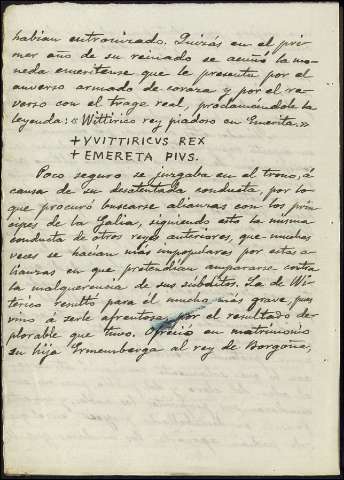 habian entronizado. Quizás en el pri-
mer año de su reinado se acuñó la mo-
neda emeritense que le presenta por el
anverso armado de coraza y por el re-
verso con el trage real, proclamándole la
leyenda: «Wittirico rey piadoso en Emerita.»
+YVITTIRICVS REX
+EMERETA PIVS.
Poco seguro se juzgaba en el trono, á
causa de su desatentada conducta, por lo
que procuró buscarse alianzas con los prín-
cipes de la Galia, siguiendo esto la misma
conducta de otros reyes anteriores, que muchas
veces se hacian más impopulares por estas a-
lianzas en que pretendian ampararse contra
la malquerencia de sus subditos. La de Wi-
terico resultó para él mucho más grave, pues
vino á serle afrentosa, por el resultado de-
plorable que tuvo. Ofreció en matrimonio
su hija Ermemberga al rey de Borgoña,